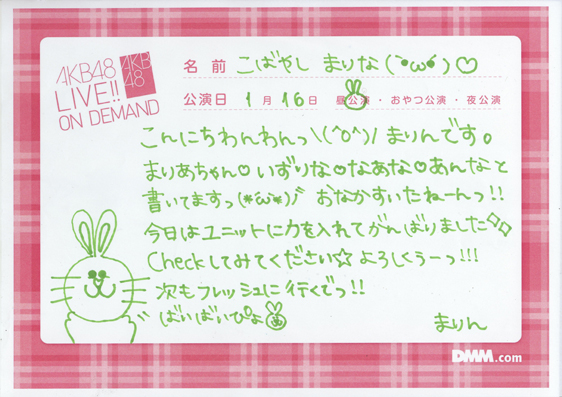 AKB48
LIVE!!
ON DEMAND
AKB
48
名前 こばやし まりな(`•ω•´)♡
公演日 1月16日 昼公演・おやつ公演・夜公演
こんにちわんわんっ\(^o^)/ まりんです。
まりあちゃん♡いずりな♡なあな♡あんなと
書いてますっ(*'ω'*)ﾉﾞ おなかすいたねーんっ!!
今日はユニットに力を入れてがんばりました
Checkしてみてください☆よろしくぅーっ!!!
次もフレッシュに行くでっ!!
ばいばいぴよ
まりん
DMM.com